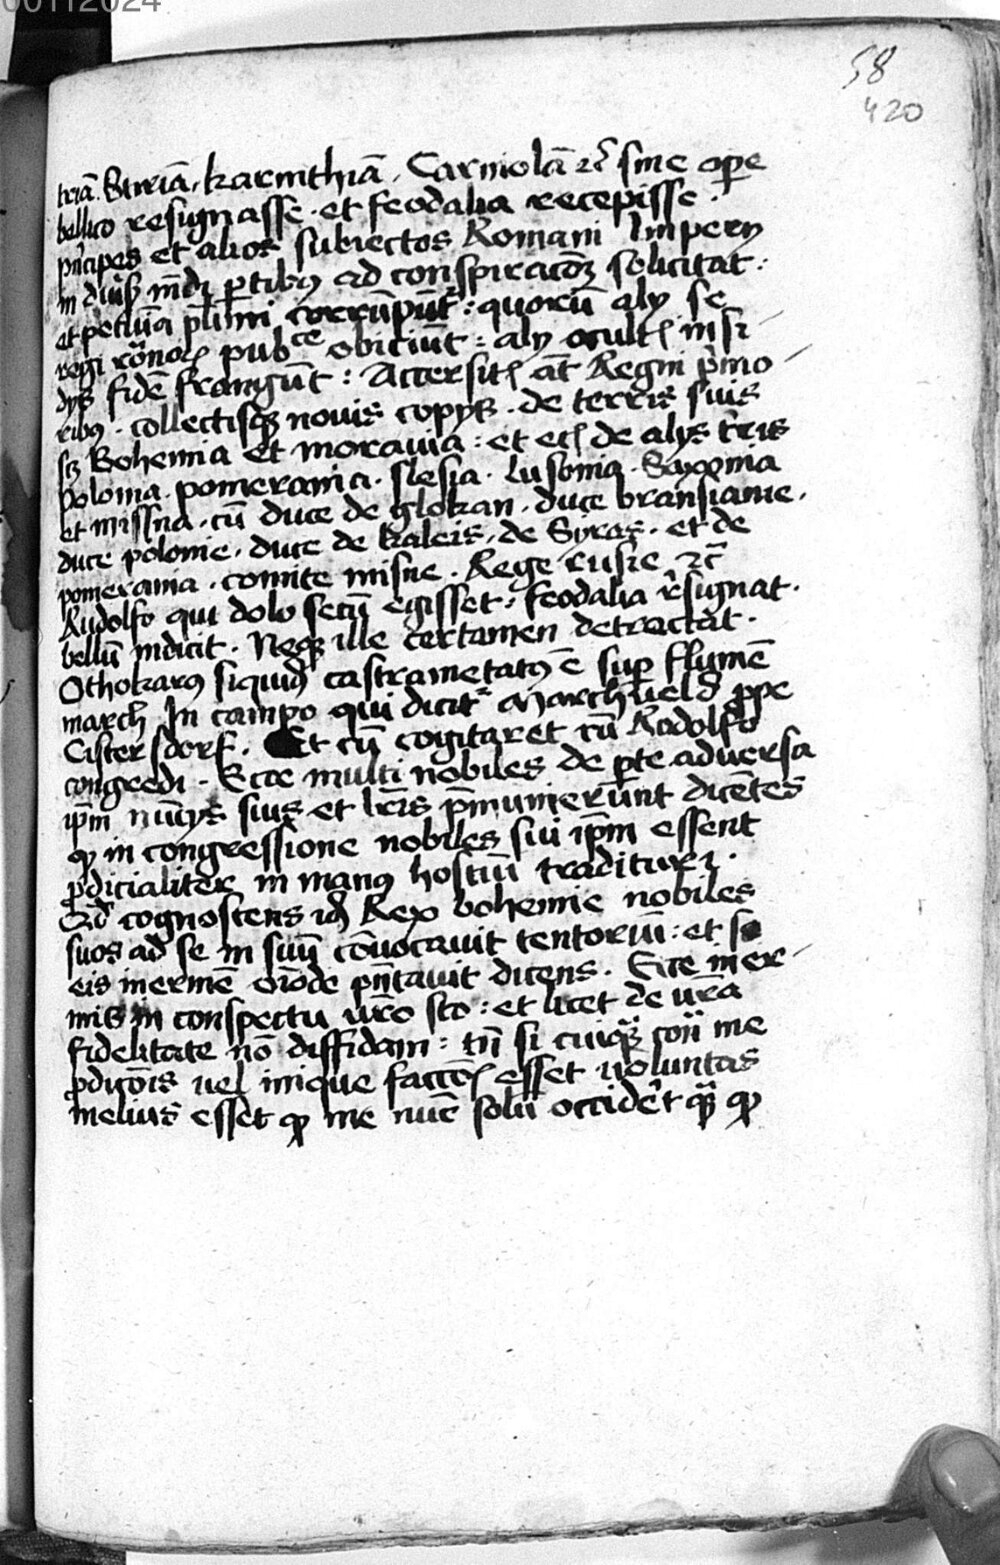 00112024
58
420
triā. Stiriā, karinthiā, Carniolā ⁊c̄ sine oꝑe
bellico resignasse. et feodalia recepisse.
pⁱncipes et alios subiectos Romani Impery
in diuⁱsꝭ mūdi ꝑtibꝰ ad conspiracōꝫ solicitat:
et pecunia pl̄imi corrūpūtʳ: quorū aly se
regi rōnoꝝ pubᶜᵉ obiciūt: aly occultꝭ insi
dyꝭ fidē frangūt: Accersitꝭ āt Regni pⁱmo
ribꝰ. collectisqꝫ nouis copyꝭ. de terris suis
sꝫ Bohemia et morauia: et ecꝭ de alys tʳris
polonia. pomerania. slesia. lusonia. Saxonia
et missna. cū duce de glokan. duce bransianie.
duce polonie. duce de kaleis, de Syras. et de
pomerania. comite misne. Rege rusie ⁊c̄
Rudolfo qui dolo secū egisset. feodalia rⁱsignat.
bellū indicit. Neqꝫ ille certamen detractat.
Othokarꝰ siquid castrametatꝰ ē suꝑ flumē
march In campo qui dicitʳ Marchueld ꝓpe
Cistersdorf. Et cū cogitaret cū Rodolfo
congredi. Ecce multi nobiles de ꝑte aduersa
ip̄m nūcys suis et lr̄is p̄muniuerunt dicētes
ꝙ in congressione nobiles sui ip̄m essent
ꝓdicialiter in manꝰ hostiū tradituri.
Qd̄ cognoscens idē Rex bohemie nobiles
suos ad se in suū cōuocauit tentoriū: et se
eis inermē oīode pn̄tauit dicens. Ecce iner
mis in conspectu vr̄o sto: et licet de vr̄a
fidelitate nō diffidam: tn̄ si cuiqꝫ con̄ me
ꝓdicōis uel inique faccōꝭ esset uoluntas
melius esset ꝙ me nūc solū occideⁱt qᵃꝫ ꝙ